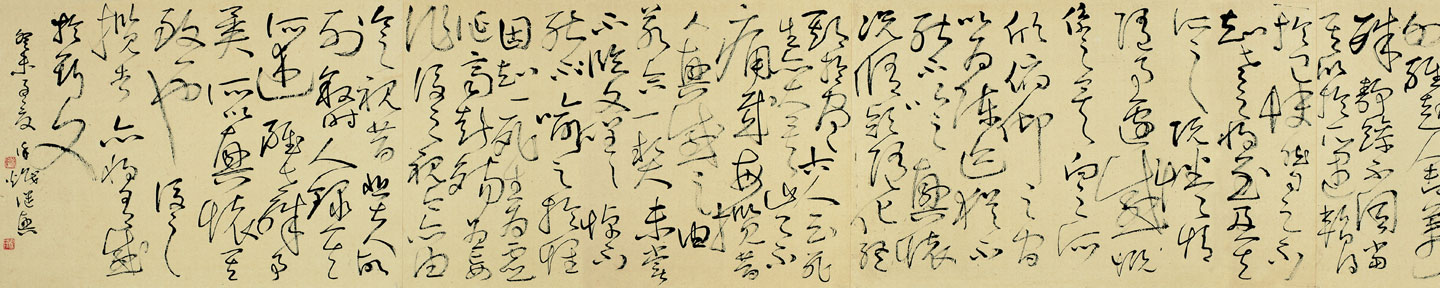 外雖趣舍萬
殊靜躁不同當
其欣於所遇暫得
於己快然自足不
知老之將至及其
所之既惓情
隨事遷感慨
係之矣向之所
欣俯仰之間
以為陳迹猶不
能不以之興懷
況脩短隨化終
期於盡古人云死
生亦大矣豈不
痛哉每攬昔
人興感之由
若合一契未嘗
不臨文嗟悼不
能喻之於懷
固知一死生為虛
誕齊彭殤為妄
作後之視今亦由
今之視昔悲夫故
列敘時人錄其
所述雖世殊事
異所以興懷其
致一也後之
攬者亦將有感
於斯文
癸未